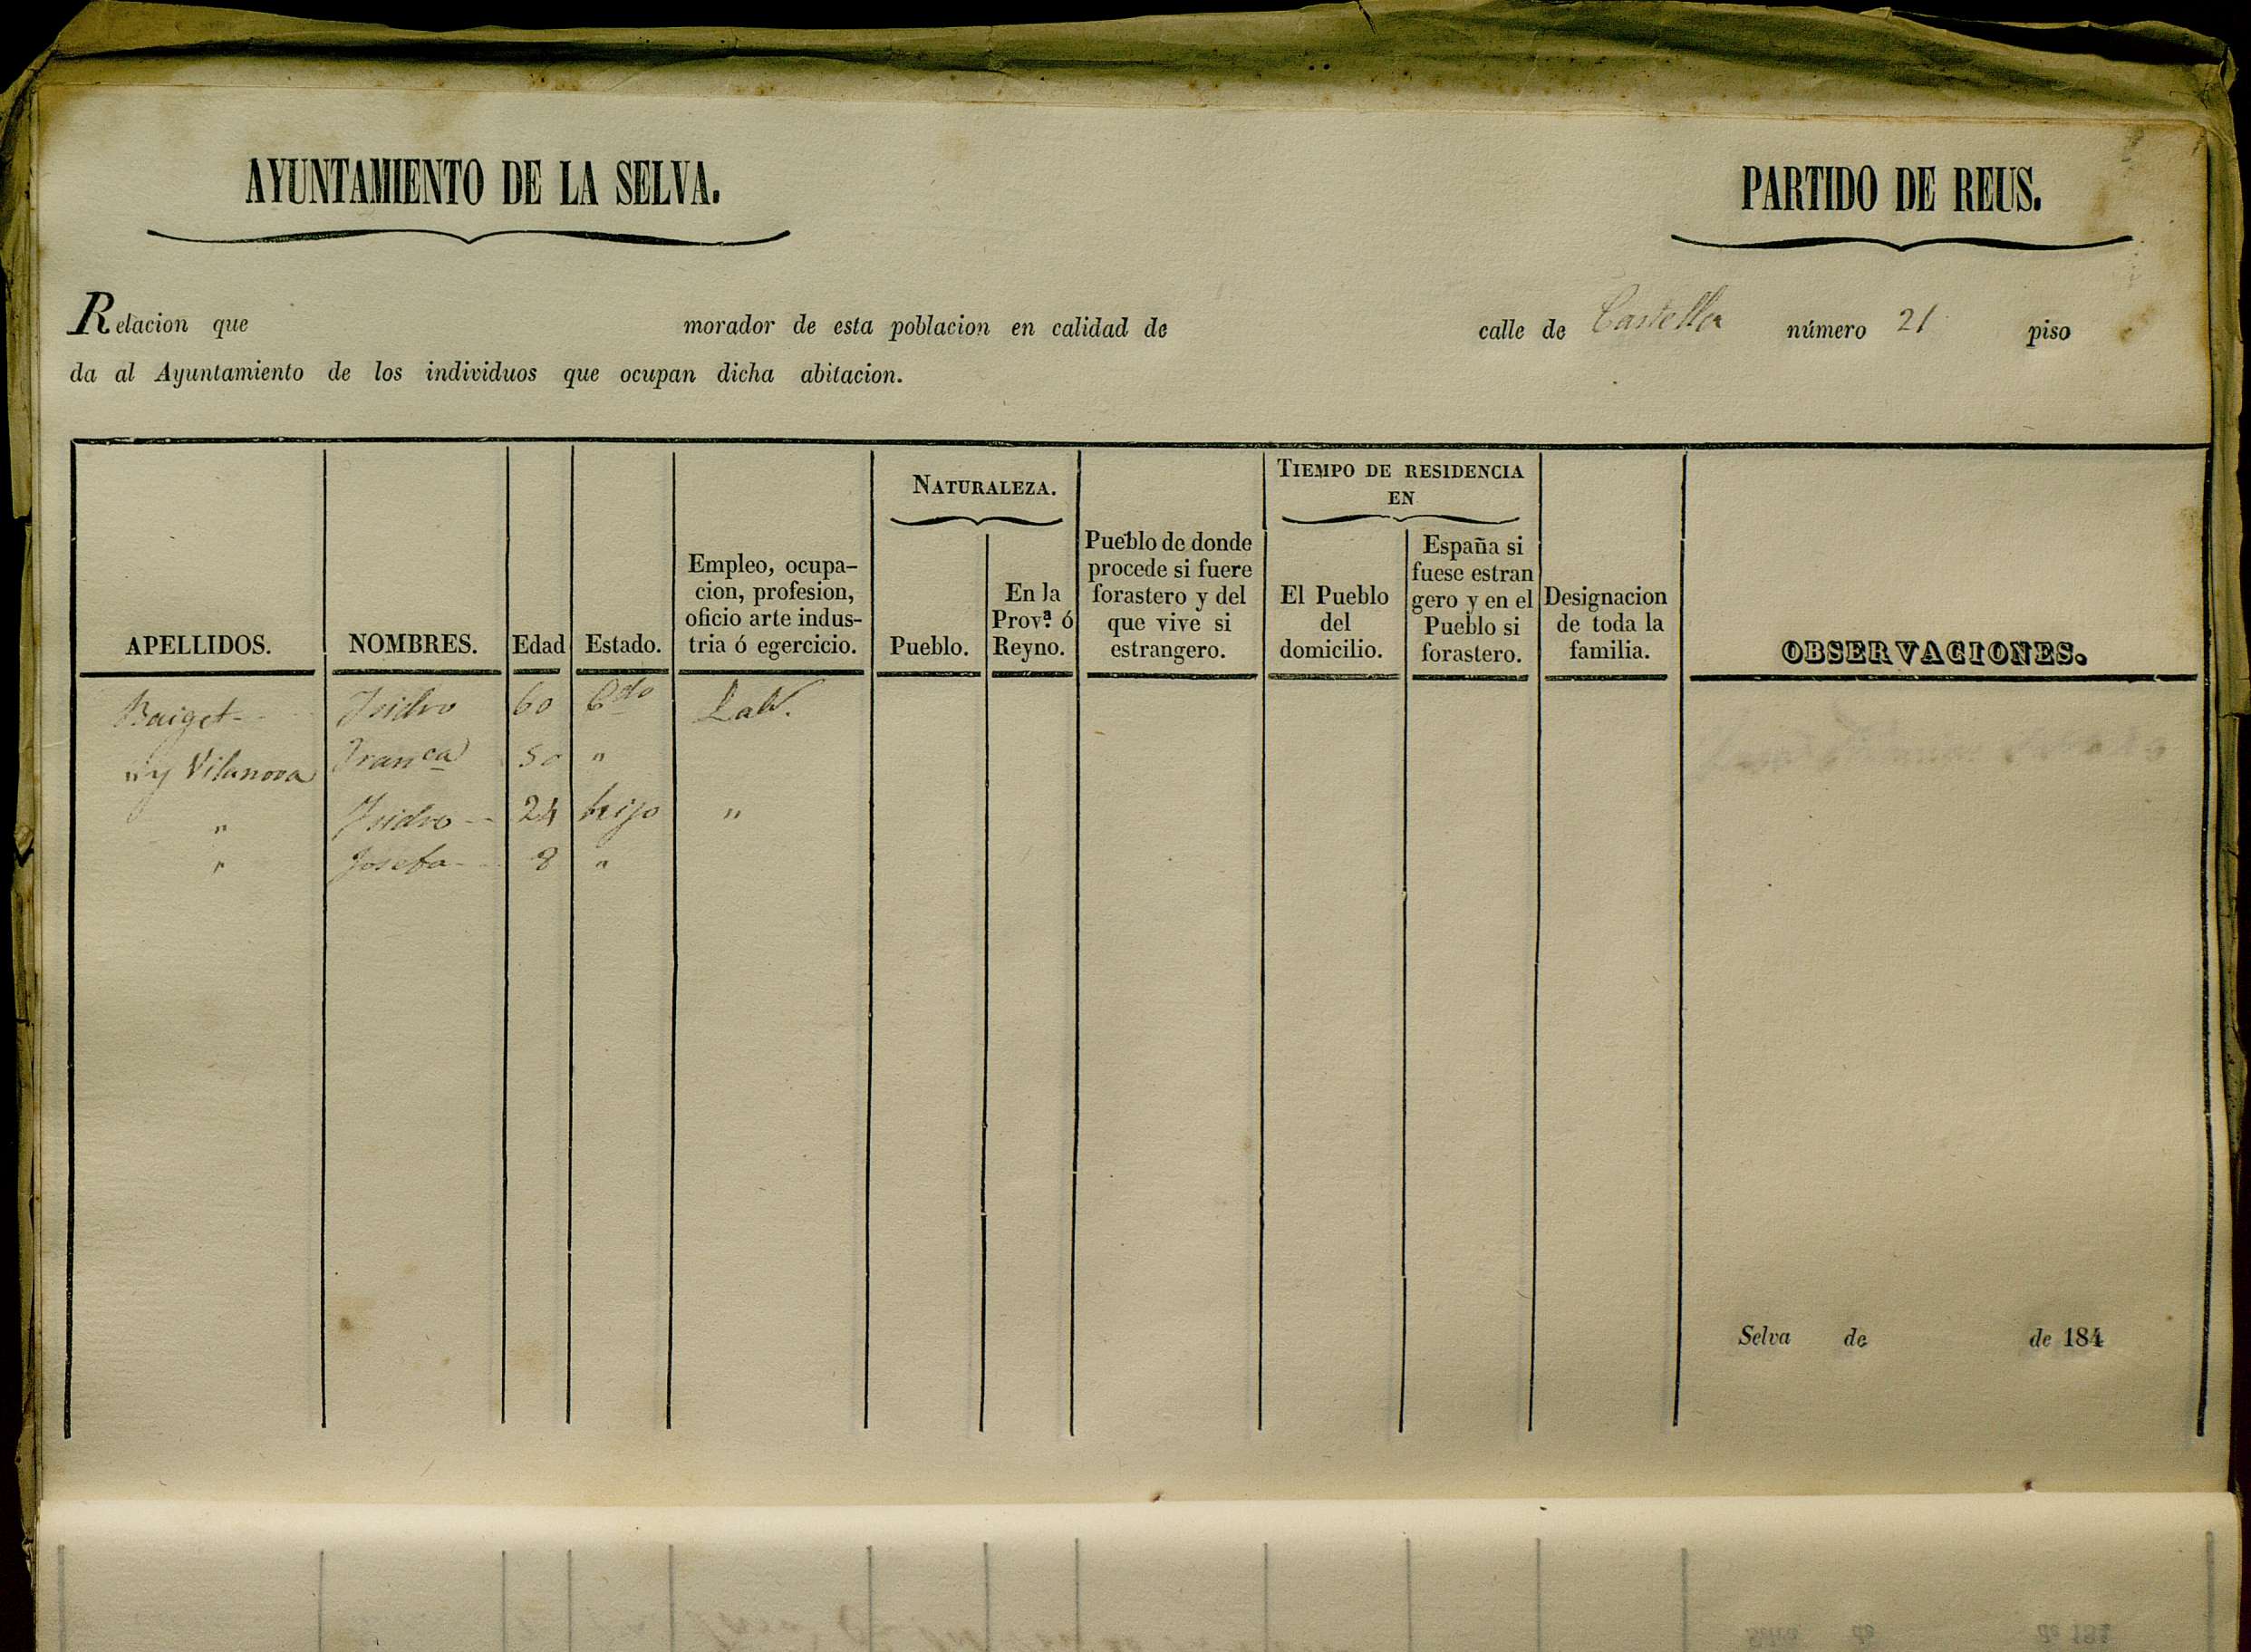 AYUNTAMIENTO DE LA SELVA.
PARTIDO DE REUS.
Relacion que morador de esta poblacion en calidad de calle de Castella número 21 piso
da al Ayuntamiento de los individuos que ocupan dicha abitacion.
NATURALEZA.
TIEMPO DE RESIDENCIA
EN
APELLIDOS.
NOMBRES.
Edad
Estado.
Empleo, ocupa-
cion, profesion,
oficio arte indus-
tria ó egercicio.
Pueblo.
En la
Prov.ª ó
Reyno.
Pueblo de donde
procede si fuere
forastero y del
que vive si
estrangero.
El Pueblo
del
domicilio.
España si
fuese estran
gero y en el
Pueblo si
forastero.
Designacion
de toda la
familia.
OBSERVACIONES.
Baiget Isidro 60 C.do Lab.
" y Vilanova Fran.ca 50 "
" Isidro 24 hijo "
" Josefa 8 "
Selva de de 184